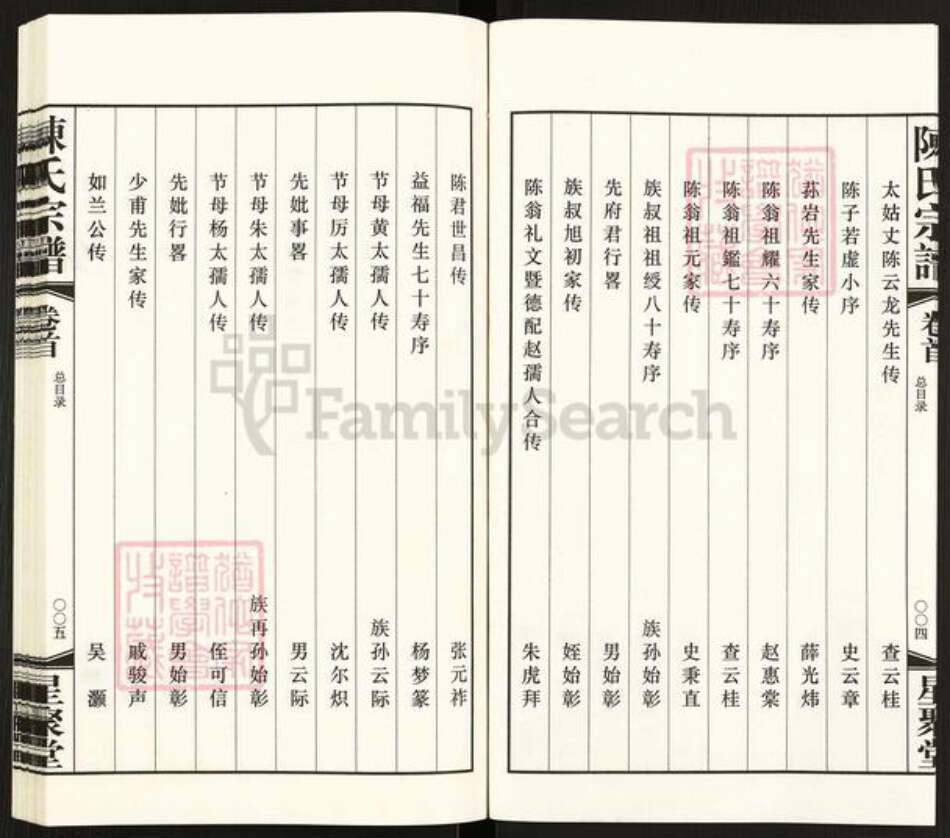 陳氏宗譜
卷首
总目录
〇〇四
星聚堂
太姑丈陈云龙先生传 查云桂
陈子若虚小序 史云章
荪岩先生家传 薛光炜
陈翁祖耀六十寿序 赵惠棠
陈翁祖鑑七十寿序 查云桂
陈翁祖元家传 史秉直
族叔祖祖绶八十寿序 族孙始彰
先府君行畧 男始彰
族叔旭初家传 姪始彰
陈翁礼文暨德配赵孺人合传 朱虎拜
陈君世昌传 张元祚
益福先生七十寿序 杨梦篆
节母黄太孺人传 族孙云际
节母厉太孺人传 沈尔炽
先妣事畧 男云际
节母朱太孺人传 族再孙始彰
节母杨太孺人传 侄可信
先妣行畧 男始彰
少甫先生家传 戚骏声
如兰公传 吴灏
陳氏宗譜
卷首
总目录
〇〇五
星聚堂
FamilySearch